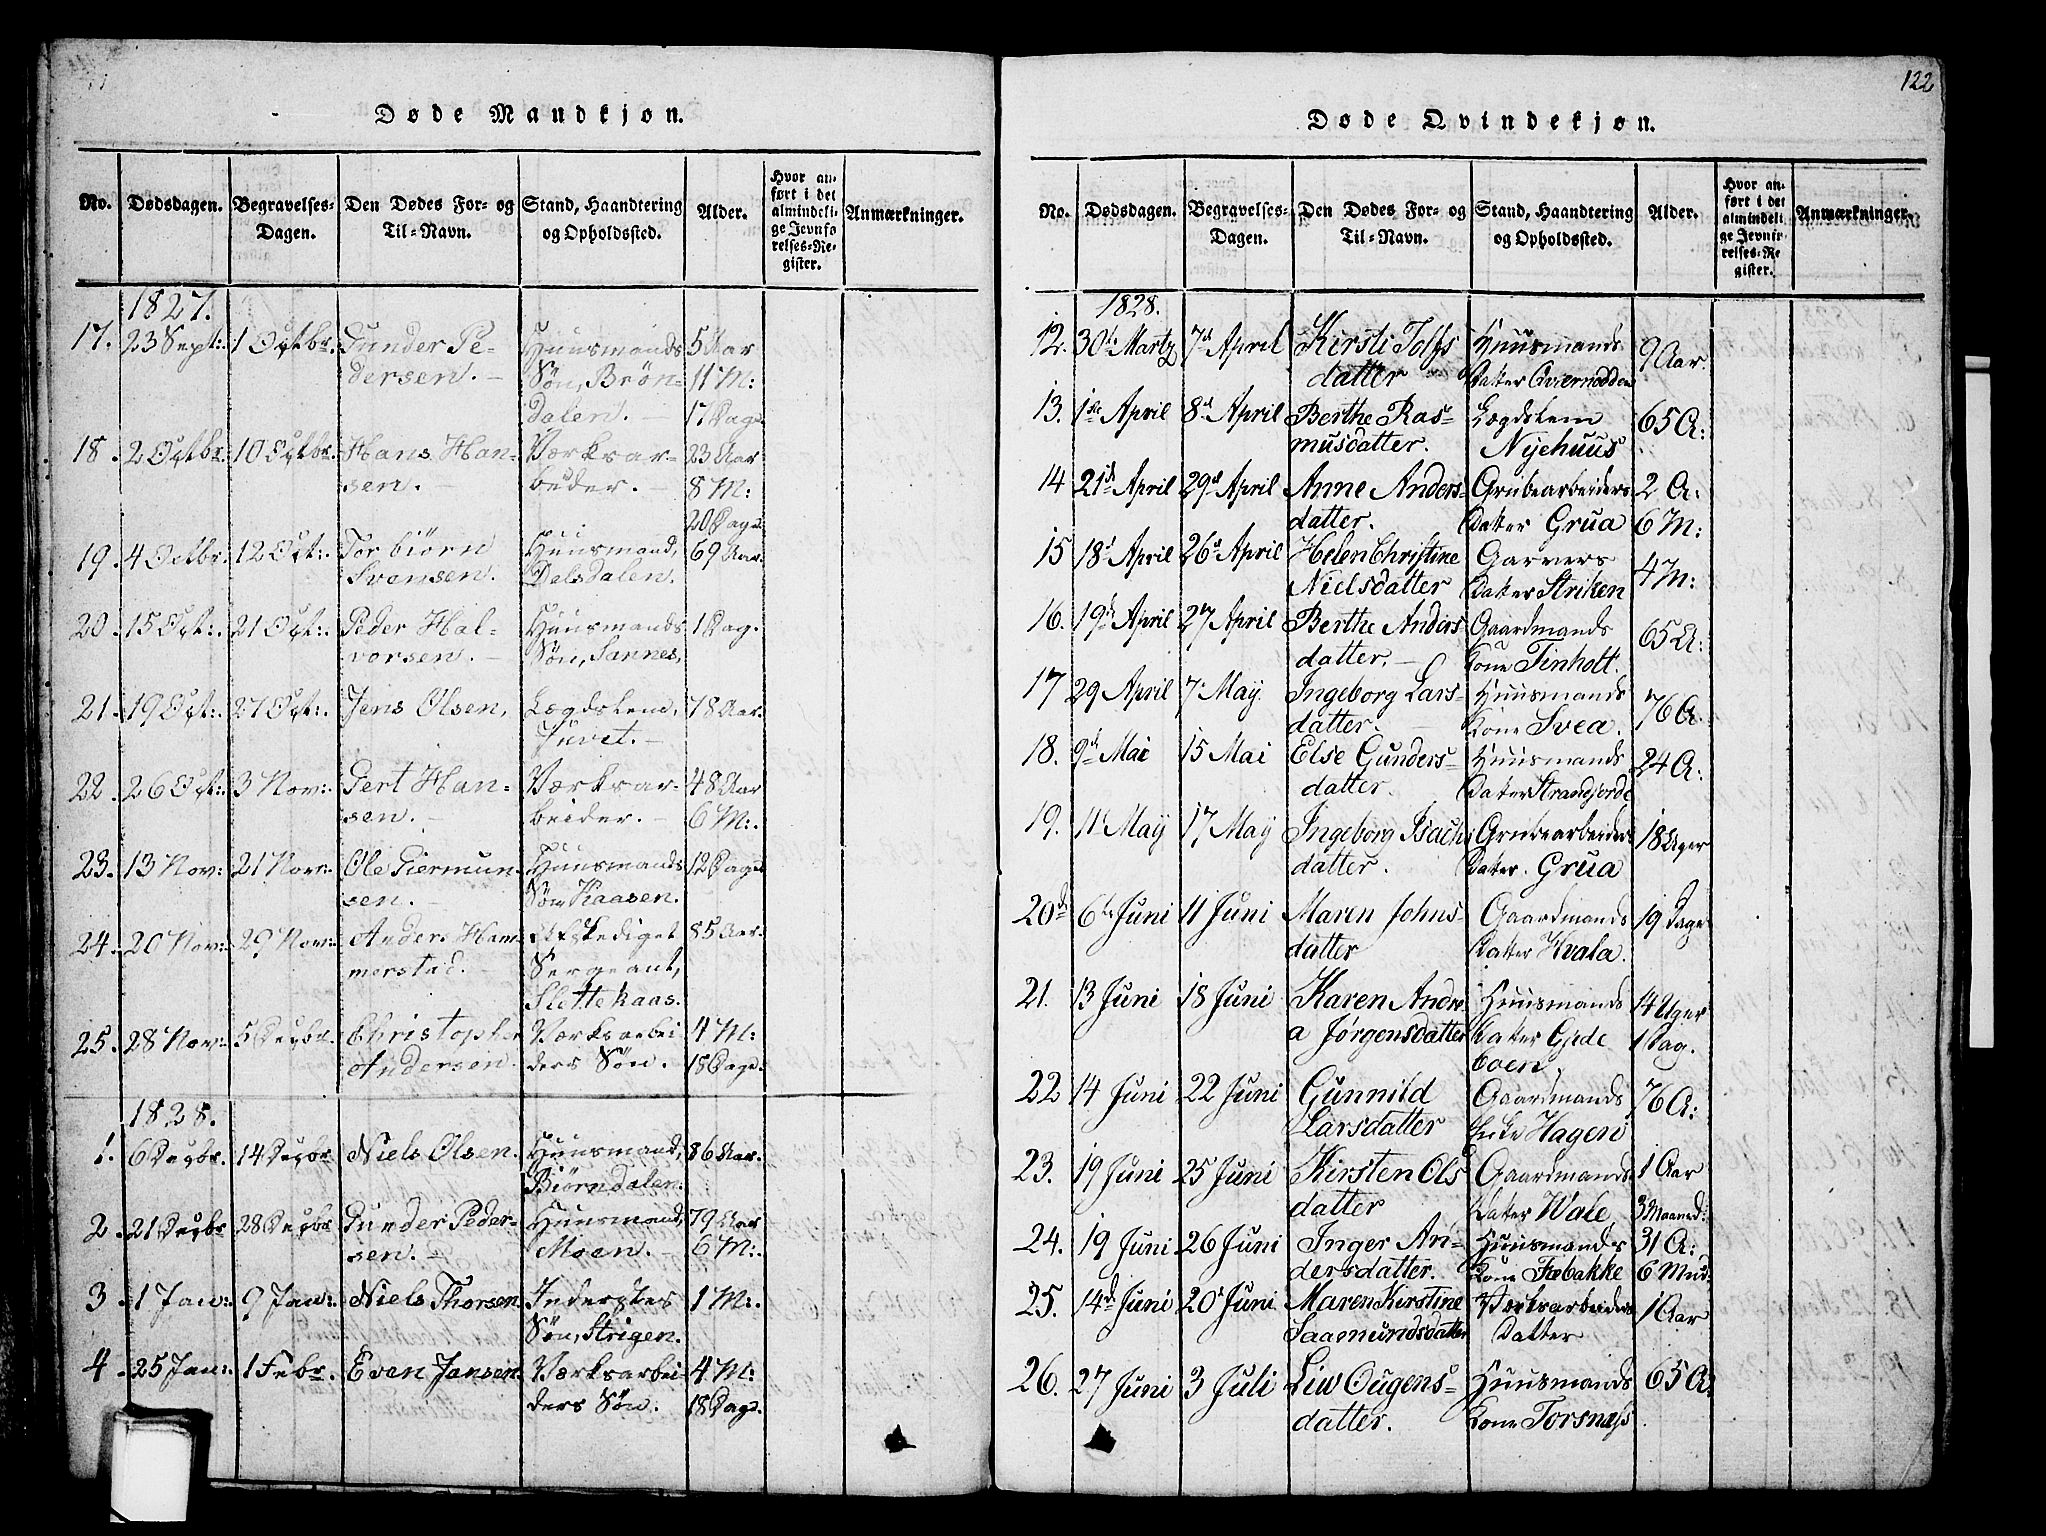 Døde Mandkjøn.
No. Dødsdagen. Begravelses-Dagen. Den Dødes For- og Til-Navn. Stand, Haandtering og Opholdssted. Alder. Hvor anført i det almindelige Jevnførelses-Register. Anmærkninger.
1827.
17. 23 Sept: 1 Octbr. Gunder Pe- Huusmands 5 Aar
dersen. Søn, Brön- 11 M:
dalen. 17 Dage.
18. 2 Octbr. 10 Octbr. Hans Han- Værksar- 23 Aar
sen. beider. 8 M:
20 Dage.
19. 4 Octbr. 12 Oct: Torbiörn Huusmand, 69 Aar.
Svensen. Dalsdalen.
20. 15 Oct: 21 Oct: Peder Hal- Huusmands 1 Dag.
vorsen. Søn, Sannes.
21. 19 Oct: 27 Oct: Jens Olsen, Lægdslem, 78 Aar.
Juvet.
22. 26 Oct: 3 Nov: Gert Han- Værksar- 48 Aar
sen. beider. 6 M:
23. 13 Nov: 21 Nov: Ole Giermun- Huusmands 12 Dage
sen. Søn Kaasen.
24. 20 Nov: 29 Nov: Anders Ham- Afskediget 85 Aar.
merstad. Sergeant,
Slettekaas.
25. 28 Nov: 5 Decbr. Christopher Værksarbei 4 M:
Andersen. ders Søn. 18 Dage.
1828.
1. 6 Decbr. 14 Decbr Niels Olsen. Huusmand, 86 Aar.
Biörndalen.
2. 21 Decbr 28 Decbr Gunder Peder- Huusmand, 79 Aar
sen. Moen. 6 M:
3. 1 Jan: 9 Jan: Niels Thorsen Inderstes 1 M:
Søn, Strigen.
4. 25 Jan: 1 Febr. Even Jansen. Værksarbei- 4 M:
ders Søn. 18 Dage.
122
Døde Qvindekjøn.
No. Dødsdagen. Begravelses-Dagen. Den Dødes For- og Til-Navn. Stand, Haandtering og Opholdssted. Alder. Hvor anført i det almindelige Jevnførelses-Register. Anmærkninger.
1828.
12. 30te Martz 7de April Kirsti Tolfs Huusmands 9 Aar.
datter Datter Qviernodden
13. 1ste April 8d April Berthe Ras- Lægdslem 65 A:
musdatter. Nyehuus
14 21de April 29d April Anne Anders- Grubearbeiders 2 A:
datter. Datter Grua 6 M:
15 18d April 26d April Helen Christine Garvers 4 M:
Nielsdatter Datter Striken
16. 19de April 27 April Berthe Anders Gaardmands 65 A:
datter. Kone Tinholt.
17 29 April 7. May. Ingeborg Lars- Huusmands 76 A.
datter. Kone Svea.
18. 9de Mai 15 Mai Else Gunders- Huusmands 24 A:
datter. Datter Strandjorde
19. 11te May 17 May Ingeborg Isachs Grubearbeiders 18 Uger
datter. Datter. Grua
20de 6te Juni 11 Juni Maren Johns- Gaardmands 19 Dage
datter Datter Hvala.
21. 13 Juni 18 Juni Karen Andre Huusmands 14 Uger
a Jörgensdatter Datter Gjede 1 Dag.
boen.
22 14 Juni 22 Juni Gunnild Gaardmands 76 A:
Larsdatter Enke Hagen
23. 19 Juni 25 Juni Kirsten Ols Gaardmands 1 Aar
datter Datter Wale 3 Maaned:
24. 19 Juni 26 Juni Inger An- Huusmands 31 A:
dersdatter. Kone Fæbakke 6 Mnd.
25. 14d Juni 20d Juni Maren Kirstine Værksarbeiders 1 Aar
Saamundsdatter Datter
26. 27 Juni 3 Juli Liw Ougens- Huusmands 65 A:
datter. Kone Torsnæs